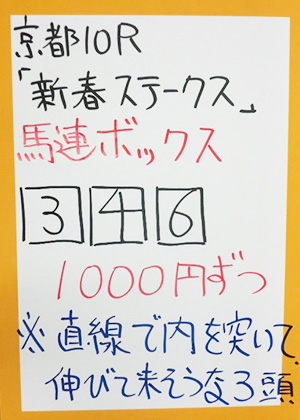 京都10R
「新春ステークス」
馬連ボックス
3 4 6
1000円ずつ
※直線で内を突いて、
伸びて来そうな3頭